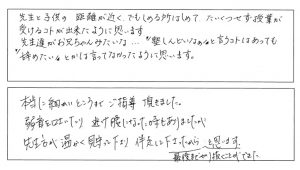 先生と子供の距離が近く、でもしめる所はしめて だいくつせず授業が
受けるコトが出来たように思います
先生達がお兄ちゃんみたいな… "難しんどいなぁ"と言うコトはあっても
"辞めたい"とかは言ってなかったように思います。
本当に細かいところまで ご指導 頂きました。
弱音をはいたり 逃げ腰になった時もありましたが
先生方が 温かく見守って下さり 伴走して下さったから と思います。
最後までやり抜くことができた